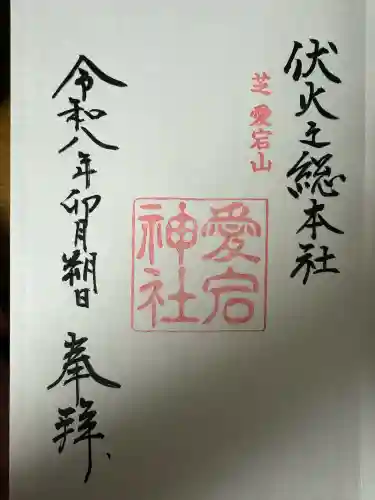 伏火之総本社
芝愛宕山
愛宕神社
令和八年卯月朔日 奉拝